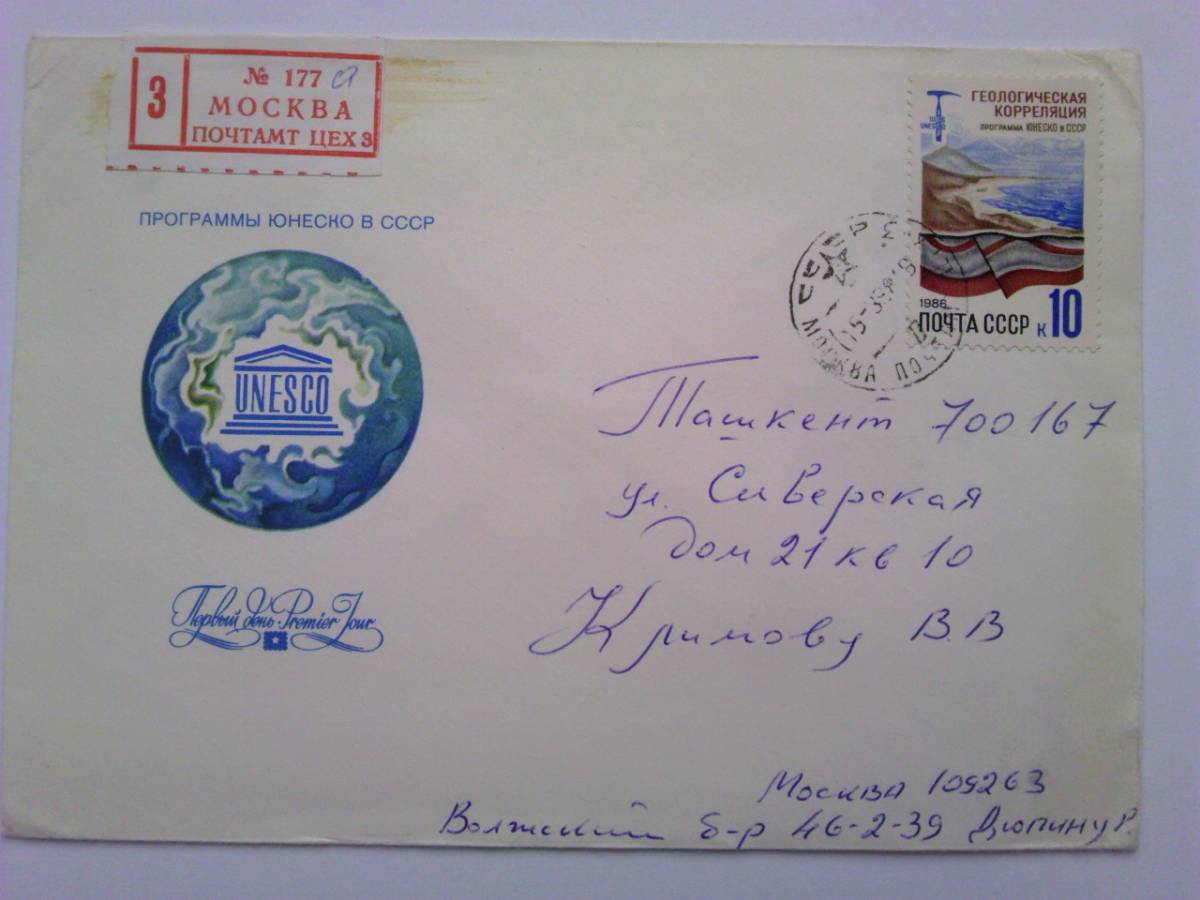 № 177
3
МОСКВА
ПОЧТАМТ ЦЕХ 3
ГЕОЛОГИЧЕСКАЯ
КОРРЕЛЯЦИЯ
ПРОГРАММА ЮНЕСКО В СССР
UNESCO
1986
ПОЧТА СССР к 10
СССР
МОСКВА
ПРОГРАММЫ ЮНЕСКО В СССР
UNESCO
Первый день · Premier Jour
Ташкент 700167
ул. Сиверская
дом 21 кв 10
Кримову В.В
Москва 109263
Волжский б-р 46-2-39 Дюпину Р.